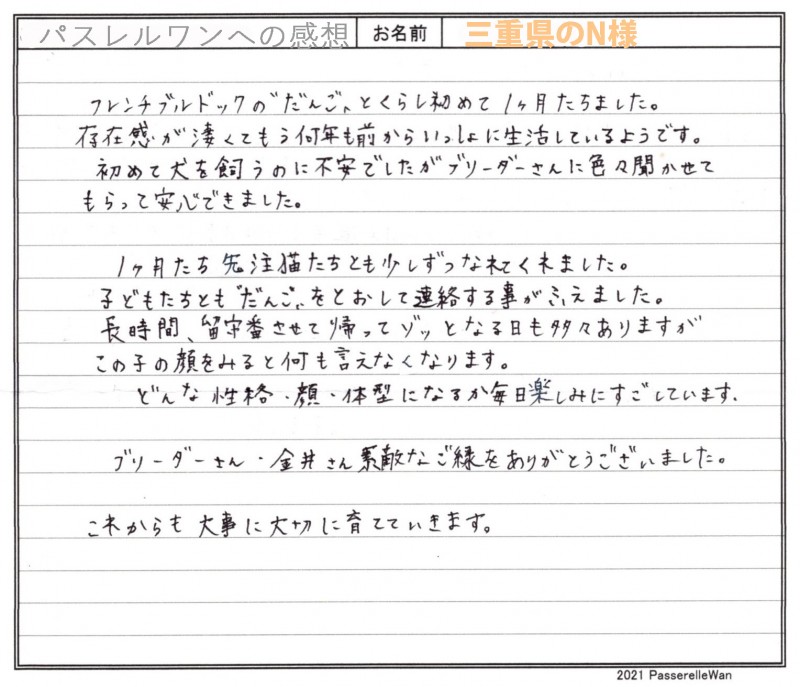 パスレルワンへの感想 お名前 三重県のN様
フレンチブルドックの"だんご"とくらし初めて1ヶ月たちました。
存在感が凄くてもう何年も前からいっしょに生活しているようです。
初めて犬を飼うのに不安でしたがブリーダーさんに色々聞かせて
もらって安心できました。
1ヶ月たち先注猫たちとも少しずつなれてくれました。
子どもたちとも"だんご"をとおして連絡する事がふえました。
長時間、留守番させて帰ってゾッとなる日も多々ありますが
この子の顔をみると何も言えなくなります。
どんな性格・顔・体型になるか毎日楽しみにすごしています.
ブリーダーさん・金井さん素敵なご縁をありがとうございました。
これからも大事に大切に育てていきます。
2021 PasserelleWan